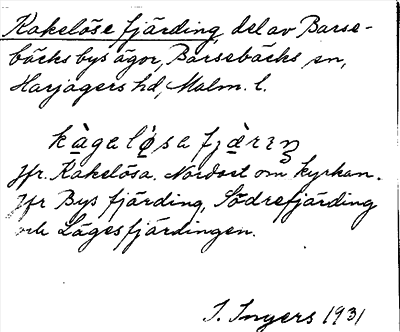 Kakelöse fjärding, del av Barse-
bäcks bys ägor, Barsebäcks sn,
Harjagers hd, Malm. l.
kàgalǿsa fjæ̀riŋ
Jfr. Kakelösa. Nordost om kyrkan.
Jfr Bys fjärding, Södrefjärding
och Lägesfjärdingen.
I. Ingers 1931